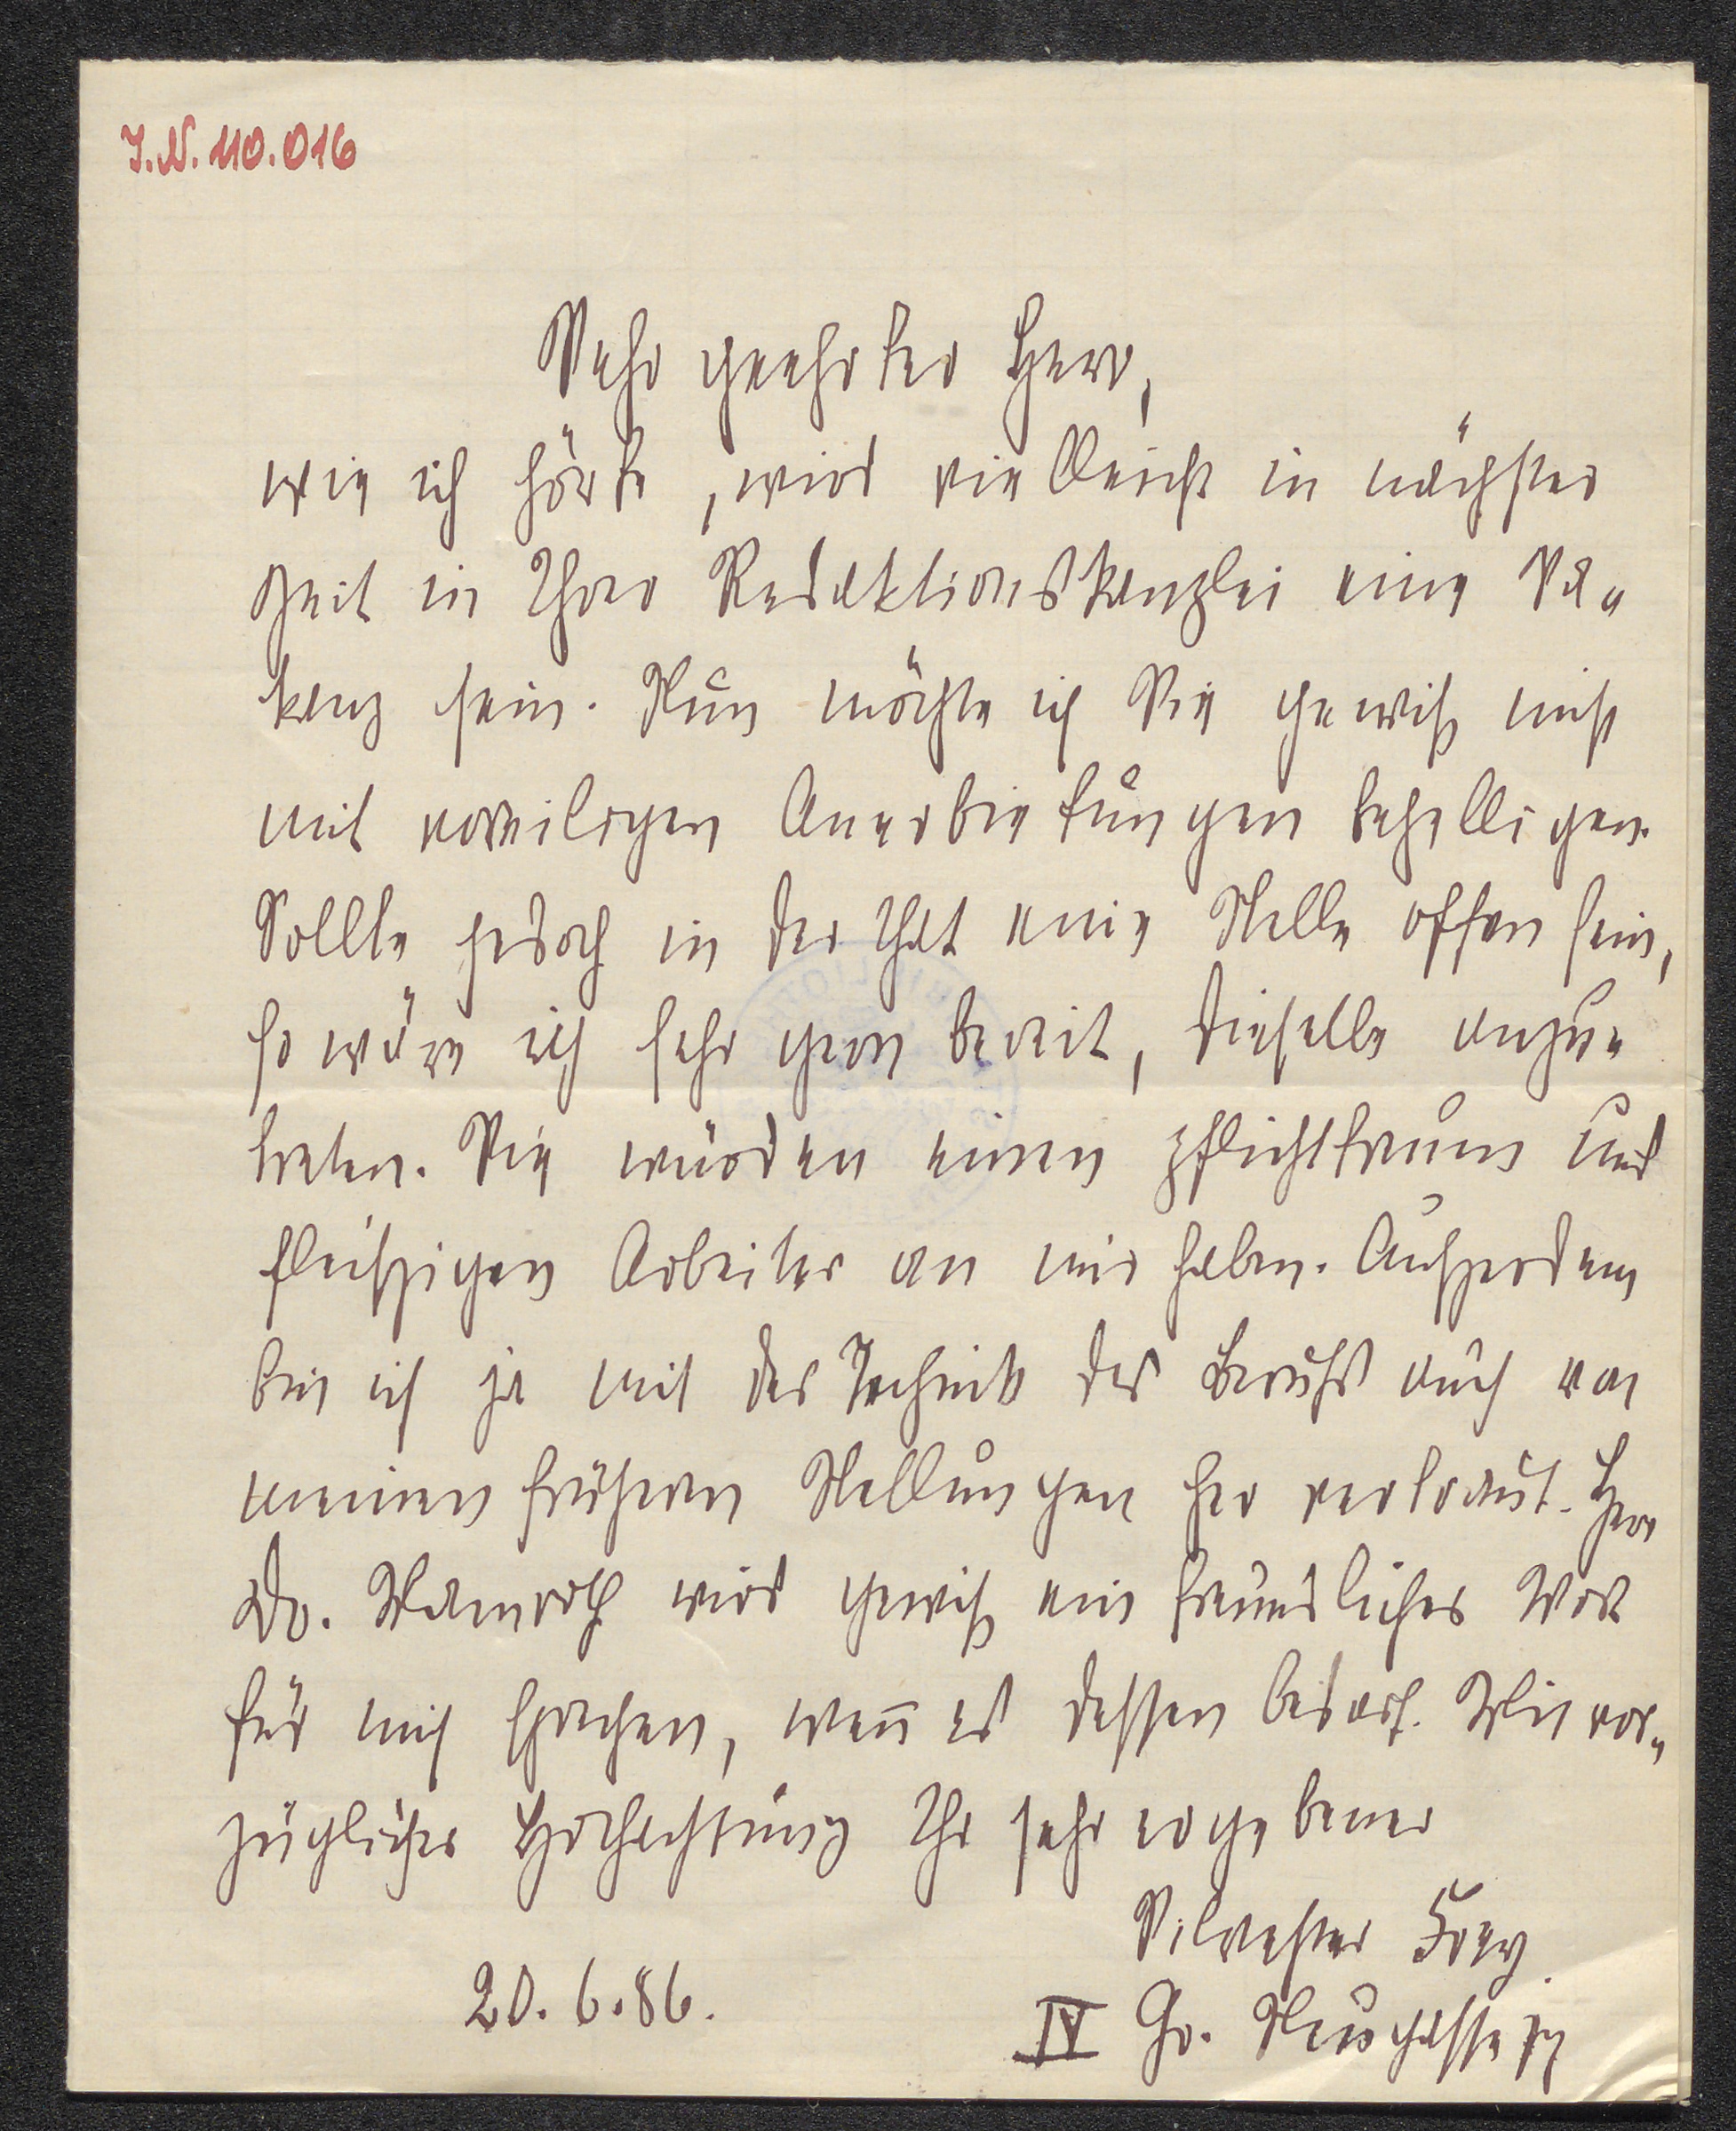 I.N. 110.016
Sehr geehrter Herr,
wie ich hörte, wird vielleicht in nächster
Zeit in Ihrer Redaktionskanzlei eine Va-
kanz sein. Nun möchte ich Sie gewiß nicht
mit voreiligen Anerbietungen behelligen.
Sollte jedoch in der That eine Stelle offen sein,
so wäre ich sehr gern bereit, dieselbe anzu-
treten. Sie würden einen pflichttreuen und
fleißigen Arbeiter an mir haben. Außerdem
bin ich ja mit der Technik des Berufs auch von
meinen früheren Stellungen her vertraut. Herr
Dr. Wamroth wird gewiß ein freundliches Wort
für mich sprechen, wenn es dessen bedarf. Mit vor-
züglicher Hochachtung Ihr sehr ergebener
Silvester Frey.
20.6.86.
IV Gr. Neugasse